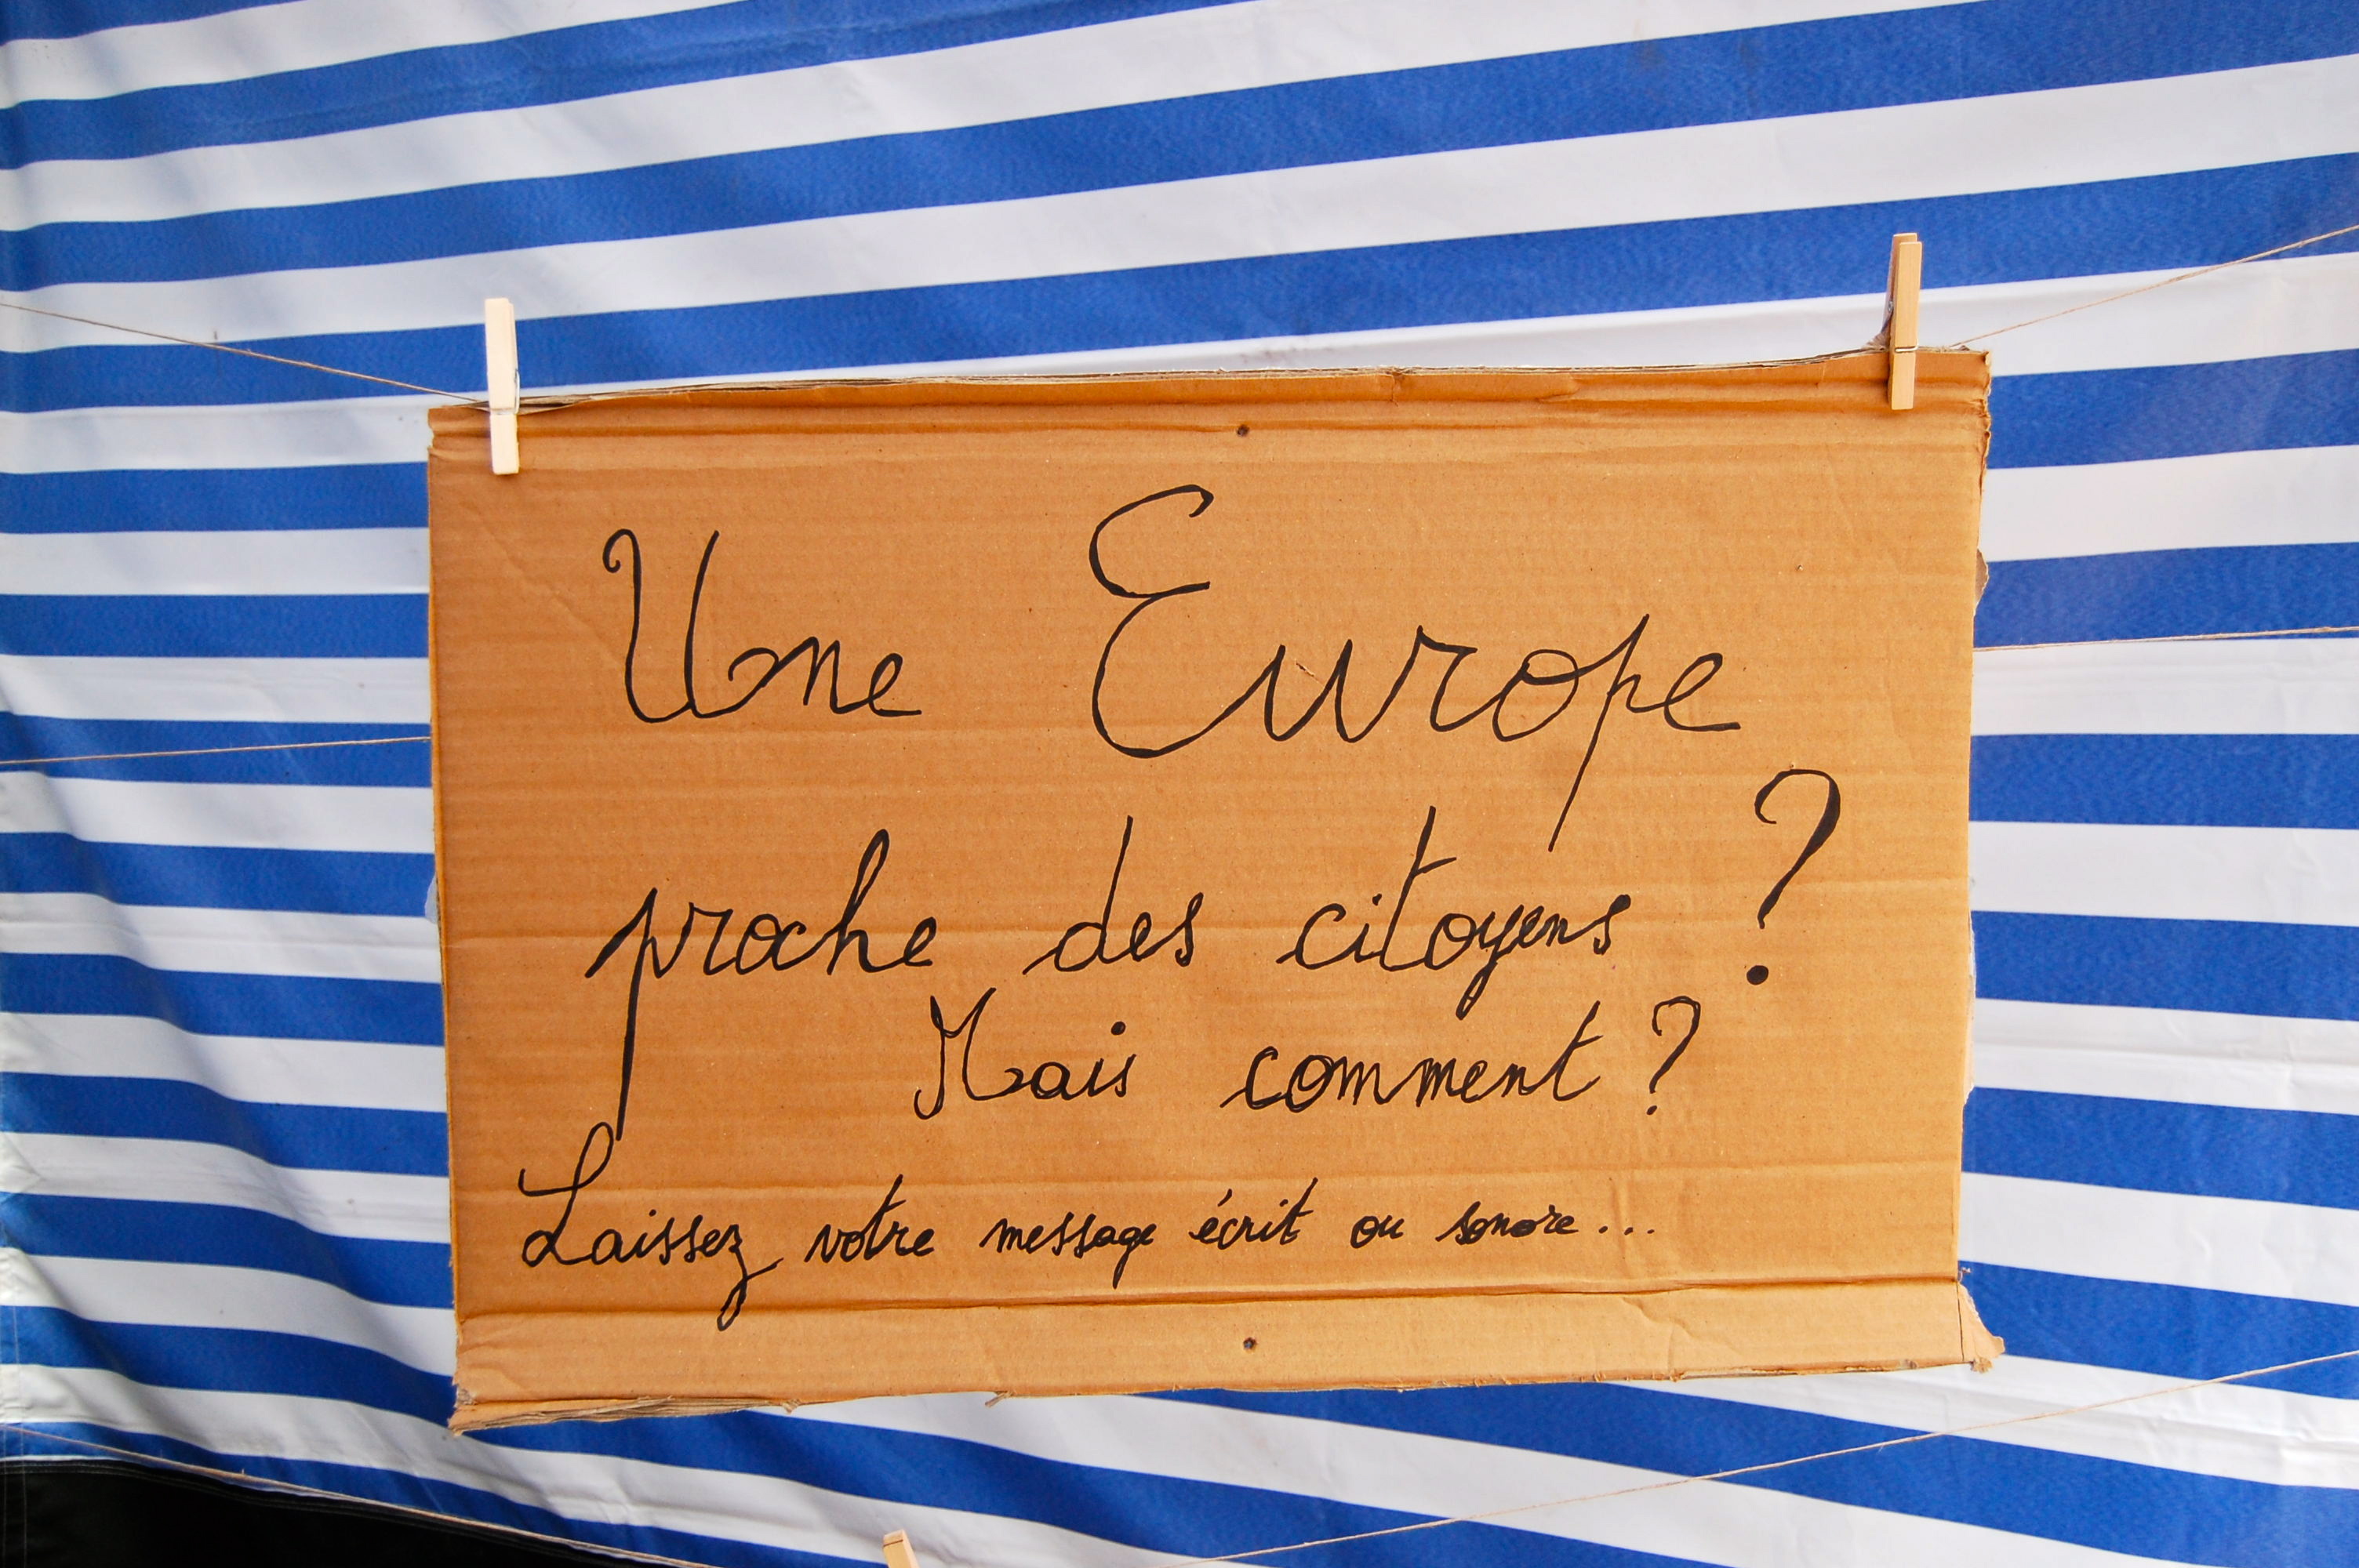 Une Europe
proche des citoyens ?
Mais comment ?
Laissez votre message écrit ou sonore...